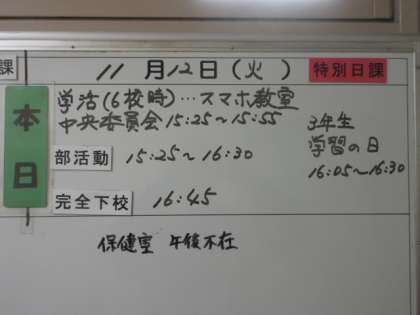 課 11月12日(火) 特別日課
本日
学活(6校時)…スマホ教室
中央委員会15:25~15:55
3年生
学習の日
16:05~16:30
部活動 15:25~16:30
完全下校 16:45
保健室 午後不在